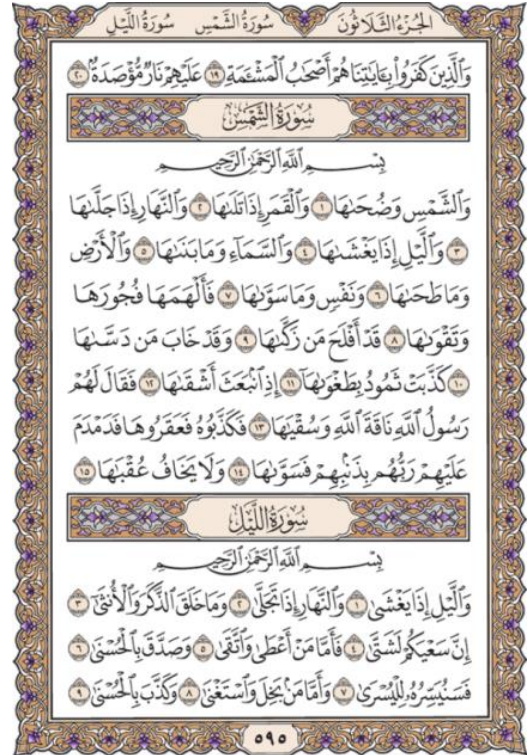 الجزء الثلاثون سورة الشمس سورة الليل
وَٱلَّذِينَ كَفَرُوا۟ بِـَٔايَـٰتِنَا هُمْ أَصْحَـٰبُ ٱلْمَشْـَٔمَةِ ١٩ عَلَيْهِمْ نَارٌ مُّؤْصَدَةٌۢ ٢٠
سُورَةُ الشَّمْسِ
بِسْمِ ٱللَّهِ ٱلرَّحْمَـٰنِ ٱلرَّحِيمِ
وَٱلشَّمْسِ وَضُحَىٰهَا ١ وَٱلْقَمَرِ إِذَا تَلَىٰهَا ٢ وَٱلنَّهَارِ إِذَا جَلَّىٰهَا
٣ وَٱلَّيْلِ إِذَا يَغْشَىٰهَا ٤ وَٱلسَّمَآءِ وَمَا بَنَىٰهَا ٥ وَٱلْأَرْضِ
وَمَا طَحَىٰهَا ٦ وَنَفْسٍ وَمَا سَوَّىٰهَا ٧ فَأَلْهَمَهَا فُجُورَهَا
وَتَقْوَىٰهَا ٨ قَدْ أَفْلَحَ مَن زَكَّىٰهَا ٩ وَقَدْ خَابَ مَن دَسَّىٰهَا
١٠ كَذَّبَتْ ثَمُودُ بِطَغْوَىٰهَآ ١١ إِذِ ٱنۢبَعَثَ أَشْقَىٰهَا ١٢ فَقَالَ لَهُمْ
رَسُولُ ٱللَّهِ نَاقَةَ ٱللَّهِ وَسُقْيَـٰهَا ١٣ فَكَذَّبُوهُ فَعَقَرُوهَا فَدَمْدَمَ
عَلَيْهِمْ رَبُّهُم بِذَنۢبِهِمْ فَسَوَّىٰهَا ١٤ وَلَا يَخَافُ عُقْبَـٰهَا ١٥
سُورَةُ اللَّيْلِ
بِسْمِ ٱللَّهِ ٱلرَّحْمَـٰنِ ٱلرَّحِيمِ
وَٱلَّيْلِ إِذَا يَغْشَىٰ ١ وَٱلنَّهَارِ إِذَا تَجَلَّىٰ ٢ وَمَا خَلَقَ ٱلذَّكَرَ وَٱلْأُنثَىٰٓ ٣
إِنَّ سَعْيَكُمْ لَشَتَّىٰ ٤ فَأَمَّا مَنْ أَعْطَىٰ وَٱتَّقَىٰ ٥ وَصَدَّقَ بِٱلْحُسْنَىٰ ٦
فَسَنُيَسِّرُهُۥ لِلْيُسْرَىٰ ٧ وَأَمَّا مَنۢ بَخِلَ وَٱسْتَغْنَىٰ ٨ وَكَذَّبَ بِٱلْحُسْنَىٰ ٩
٥٩٥